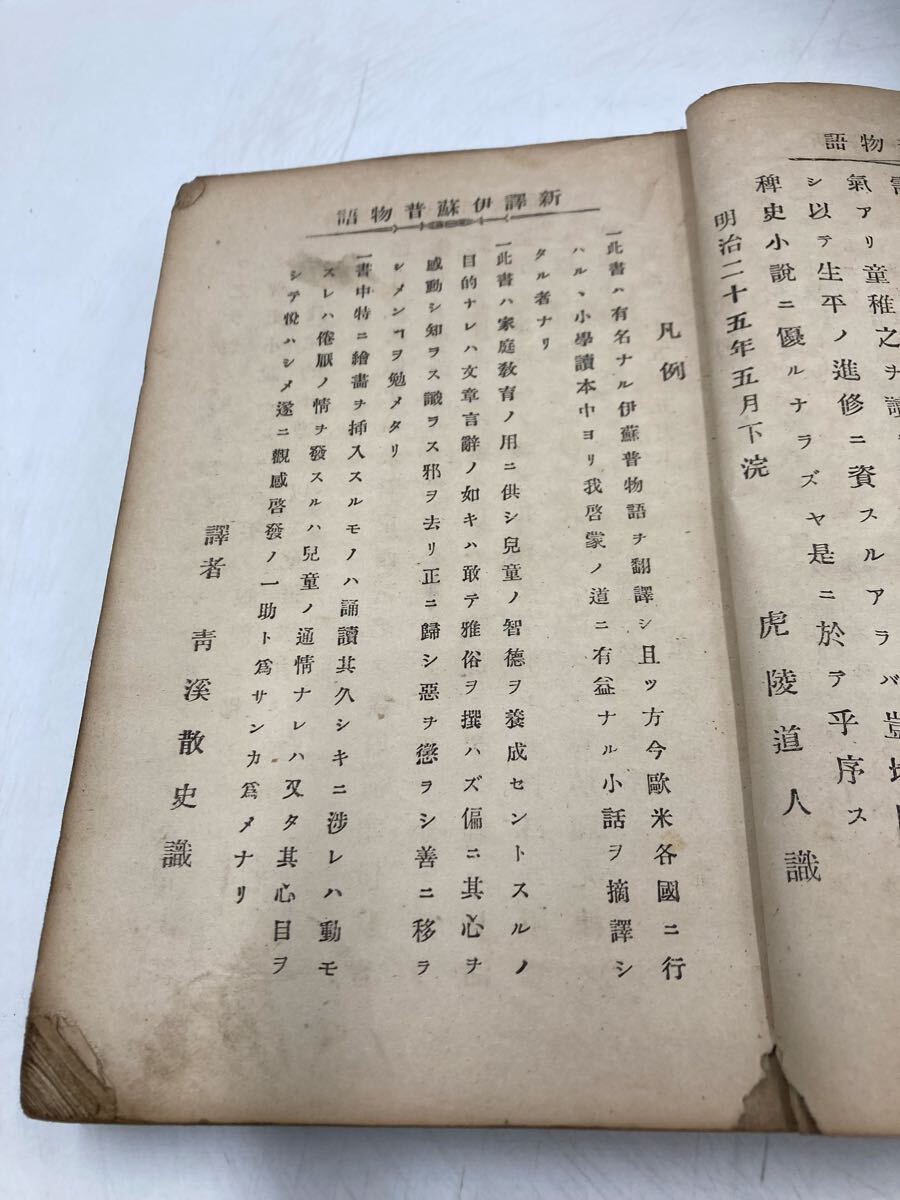 物語
氣アリ童稚之ヲ讀
シ以テ生平ノ進修ニ資スルアラバ豈
稗史小說ニ優ルナラズヤ是ニ於テ乎序ス
明治二十五年五月下浣
虎陵道人識
新譯伊蘇普物語
凡例
一此書ハ有名ナル伊蘇普物語ヲ翻譯シ且ツ方今歐米各國ニ行
ハルヽ小學讀本中ヨリ我啓蒙ノ道ニ有益ナル小話ヲ摘譯シ
タル者ナリ
一此書ハ家庭敎育ノ用ニ供シ兒童ノ智德ヲ養成セントスルノ
目的ナレハ文章言辭ノ如キハ敢テ雅俗ヲ撰ハズ偏ニ其心ヲ
感動シ知ヲス識ヲス邪ヲ去リ正ニ歸シ惡ヲ懲ラシ善ニ移ラ
シメンヿヲ勉メタリ
一書中特ニ繪畵ヲ挿入スルモノハ誦讀其久シキニ涉レハ動モ
スレハ倦厭ノ情ヲ發スルハ兒童ノ通情ナレハ又タ其心目ヲ
シテ悅ハシメ遂ニ觀感啓發ノ一助ト爲サンカ爲メナリ
譯者 靑溪散史識